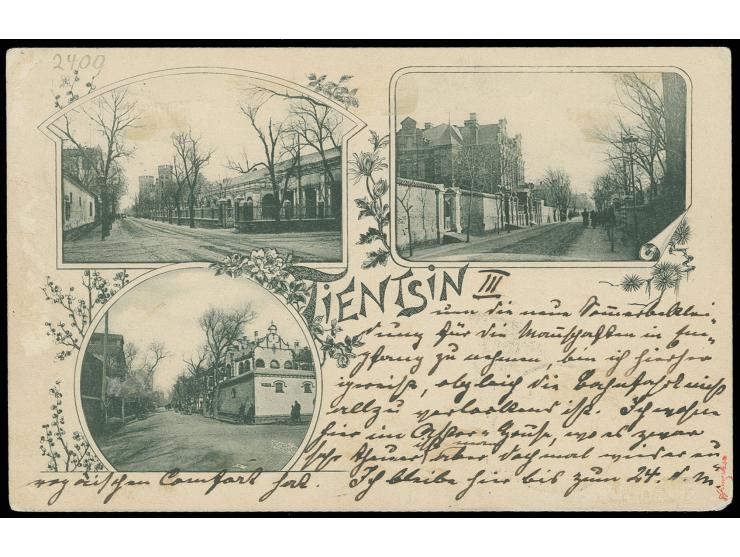 2400
TIENTSIN III
um die neue Sommerbeklei-
dung für die Mannschaften in Em-
pfang zu nehmen bin ich hierher
gereist, obgleich die Bahnfahrt nicht
allzu verlockend ist. Ich wohne
hier im Astor-House, wo es zwar
theuer ist, aber doch mal wieder eu
ropäischen Comfort hat. Ich bleibe hier bis zum 24. d. M.